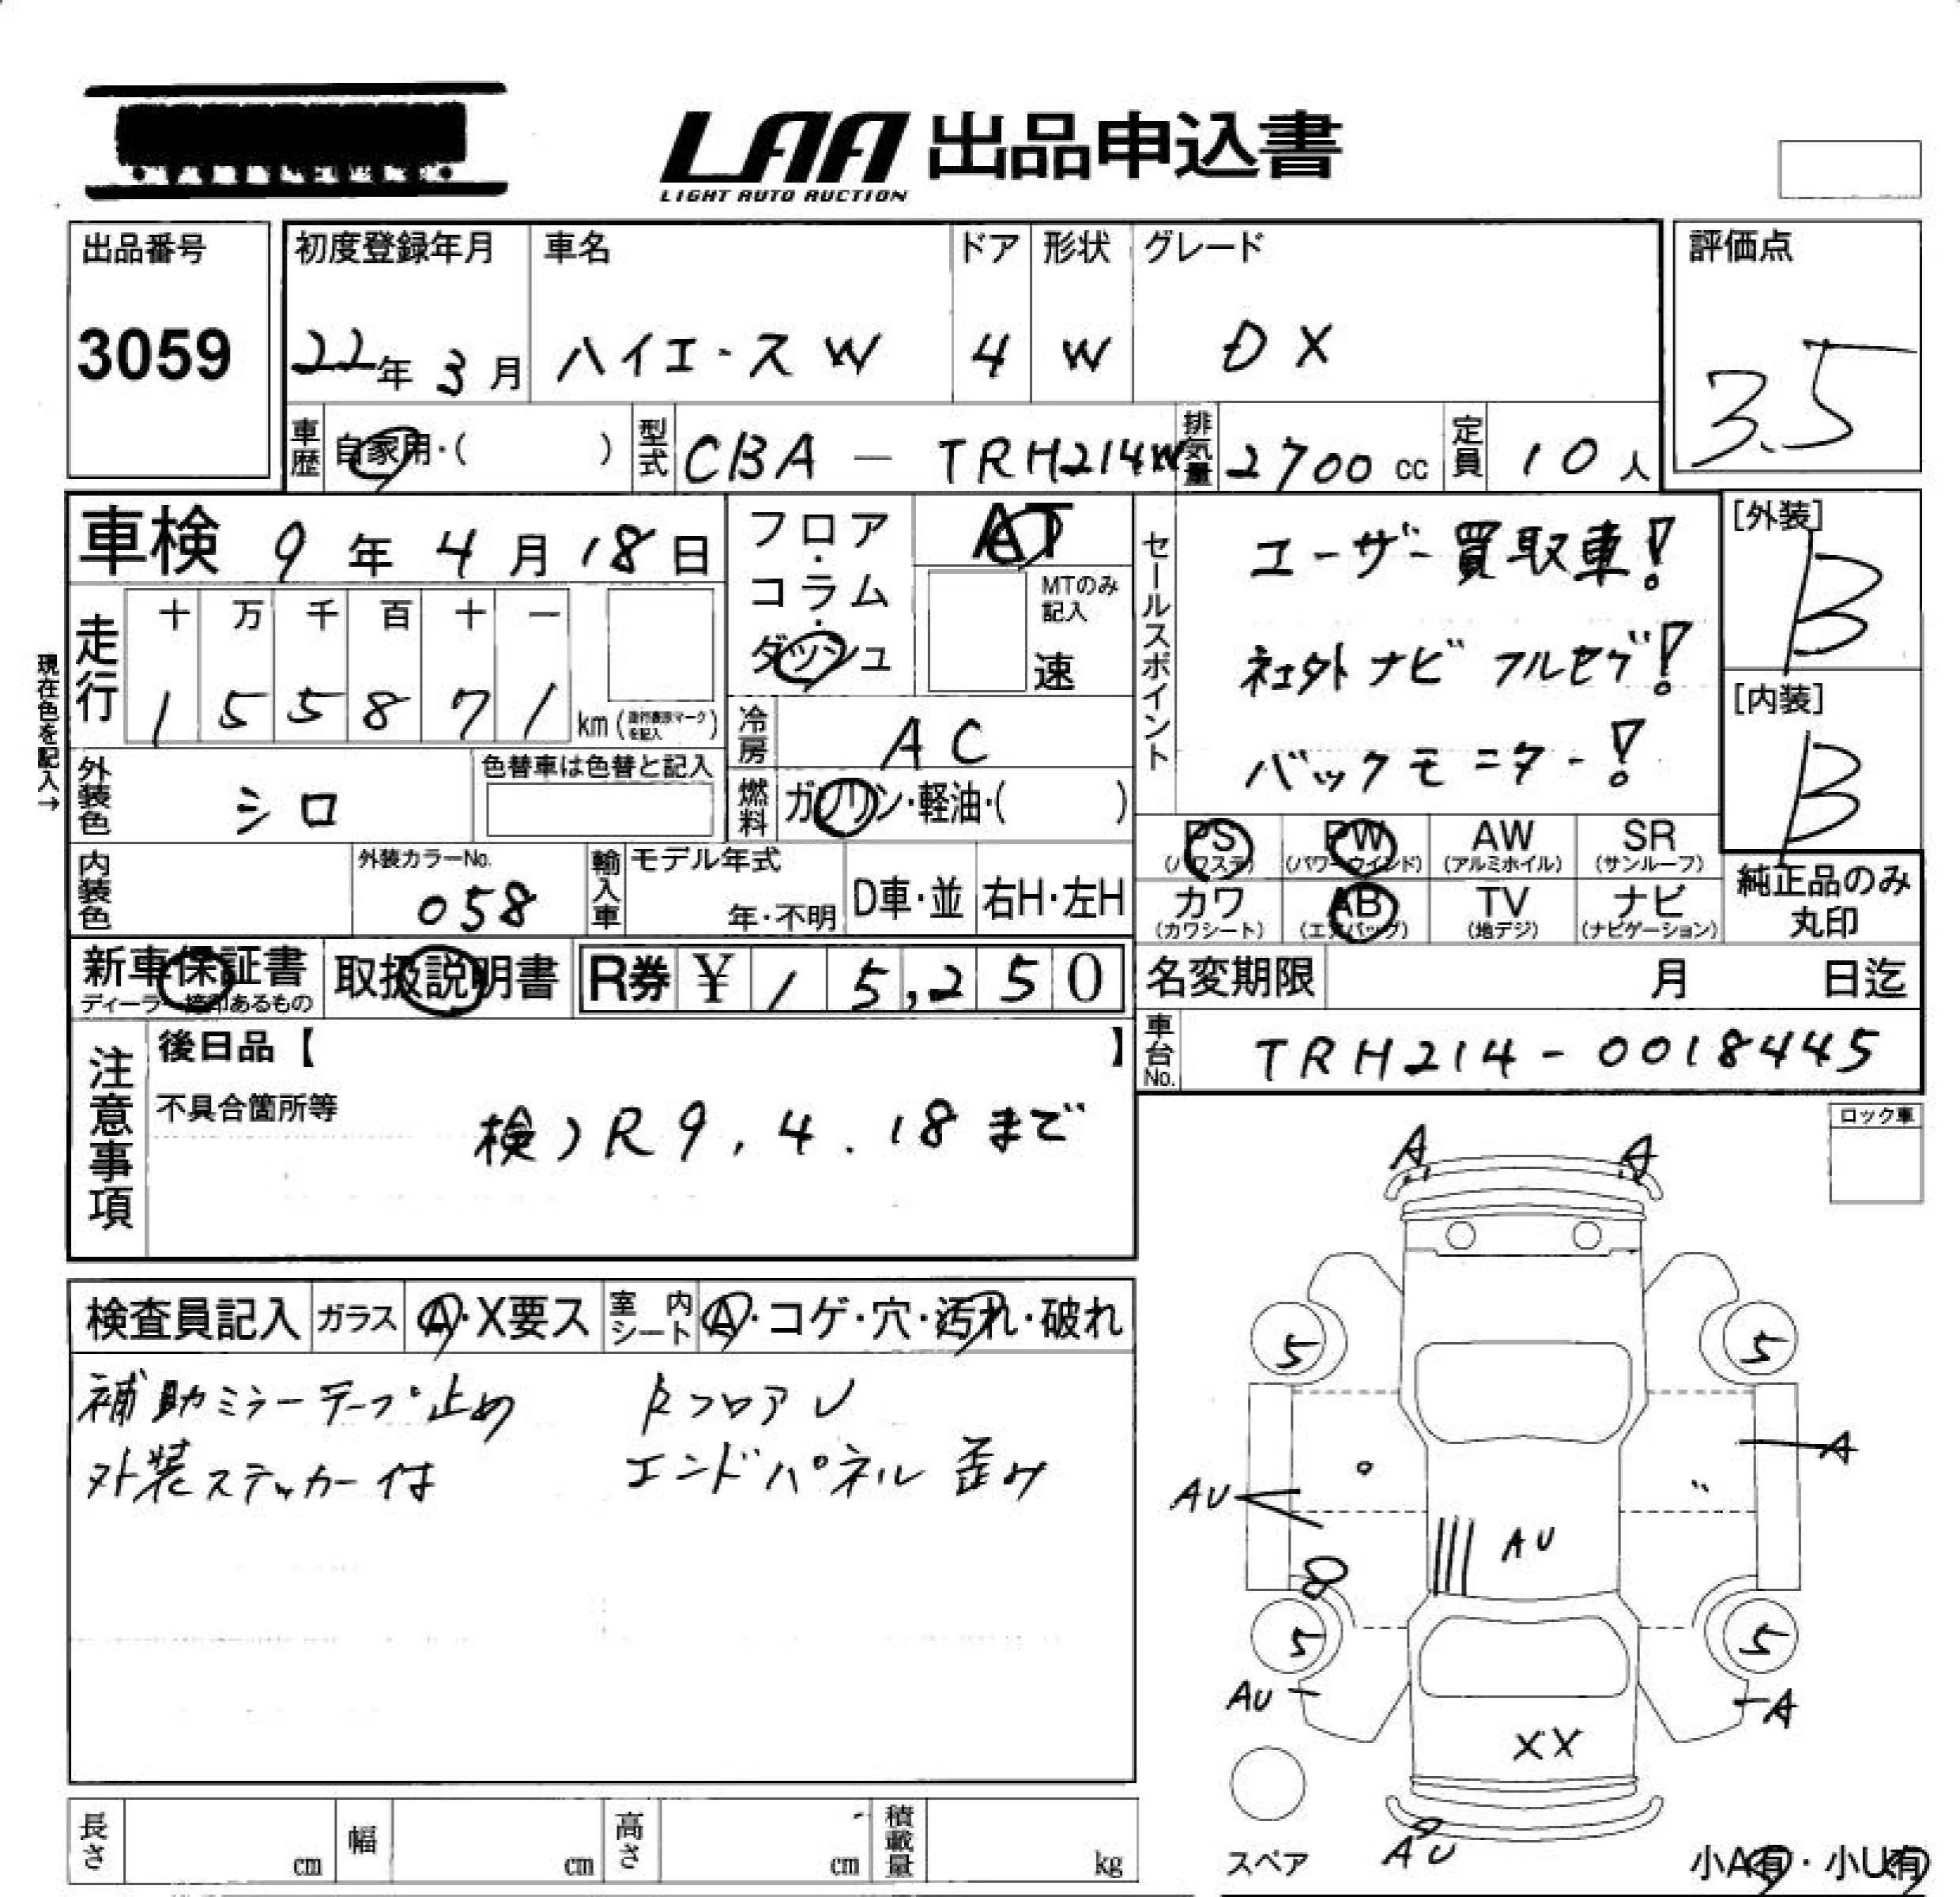 LAA 出品申込書
LIGHT AUTO AUCTION
出品番号
3059
初度登録年月
22年 3月
車名
ハイエースW
ドア
4
形状
W
グレード
DX
評価点
3.5
車歴
自家用・( )
型式
CBA - TRH214W
排気量
2700 cc
定員
10 人
車検 9年 4月 18日
フロア・コラム・ダッシュ
AT
MTのみ記入
速
セールスポイント
ユーザー買取車!
社外ナビ フルセグ!
バックモニター!
[外装]
B
[内装]
B
現在色を記入→
走行
十 万 千 百 十 一
1 5 5 8 7 1 km (走行表示マークを記入)
冷房
AC
外装色
シロ
色替車は色替と記入
燃料
ガソリン・軽油・( )
PS (パワステ)
PW (パワーウインド)
AW (アルミホイル)
SR (サンルーフ)
カワ (カワシート)
AB (エアバッグ)
TV (地デジ)
ナビ (ナビゲーション)
純正品のみ丸印
内装色
外装カラーNo.
058
輸入車
モデル年式
年・不明
D車・並
右H・左H
新車保証書
ディーラー捺印あるもの
取扱説明書
R券 ¥ 15,250
名変期限 月 日迄
車台No.
TRH214-0018445
注意事項
後日品【 】
不具合箇所等
検)R9.4.18まで
ロック車
検査員記入
ガラス A・X要ス
室内シート A・コゲ・穴・汚れ・破れ
補助ミラーテープ止め
外装ステッカー付
RフロアU
エンドパネル歪み
A A
5 5
A
AU
AU
8
5 5
AU
A
XX
AU
スペア
小A有・小U有
長さ cm
幅 cm
高さ cm
積載量 kg